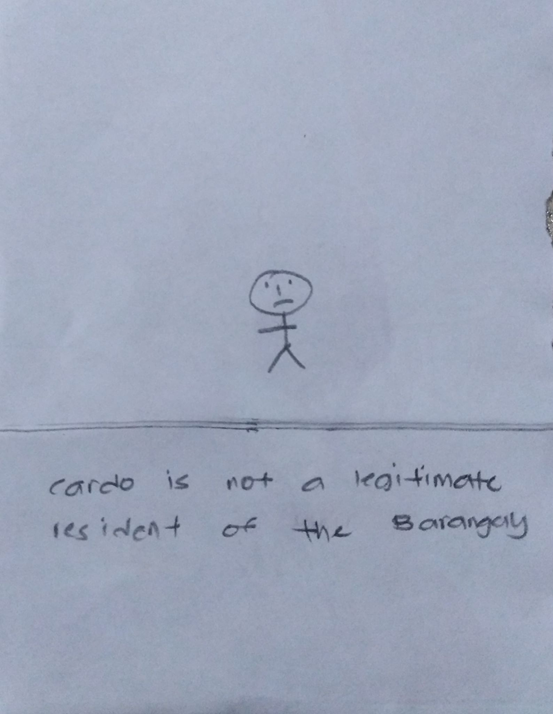 cardo is not a legitimate
resident of the Barangay